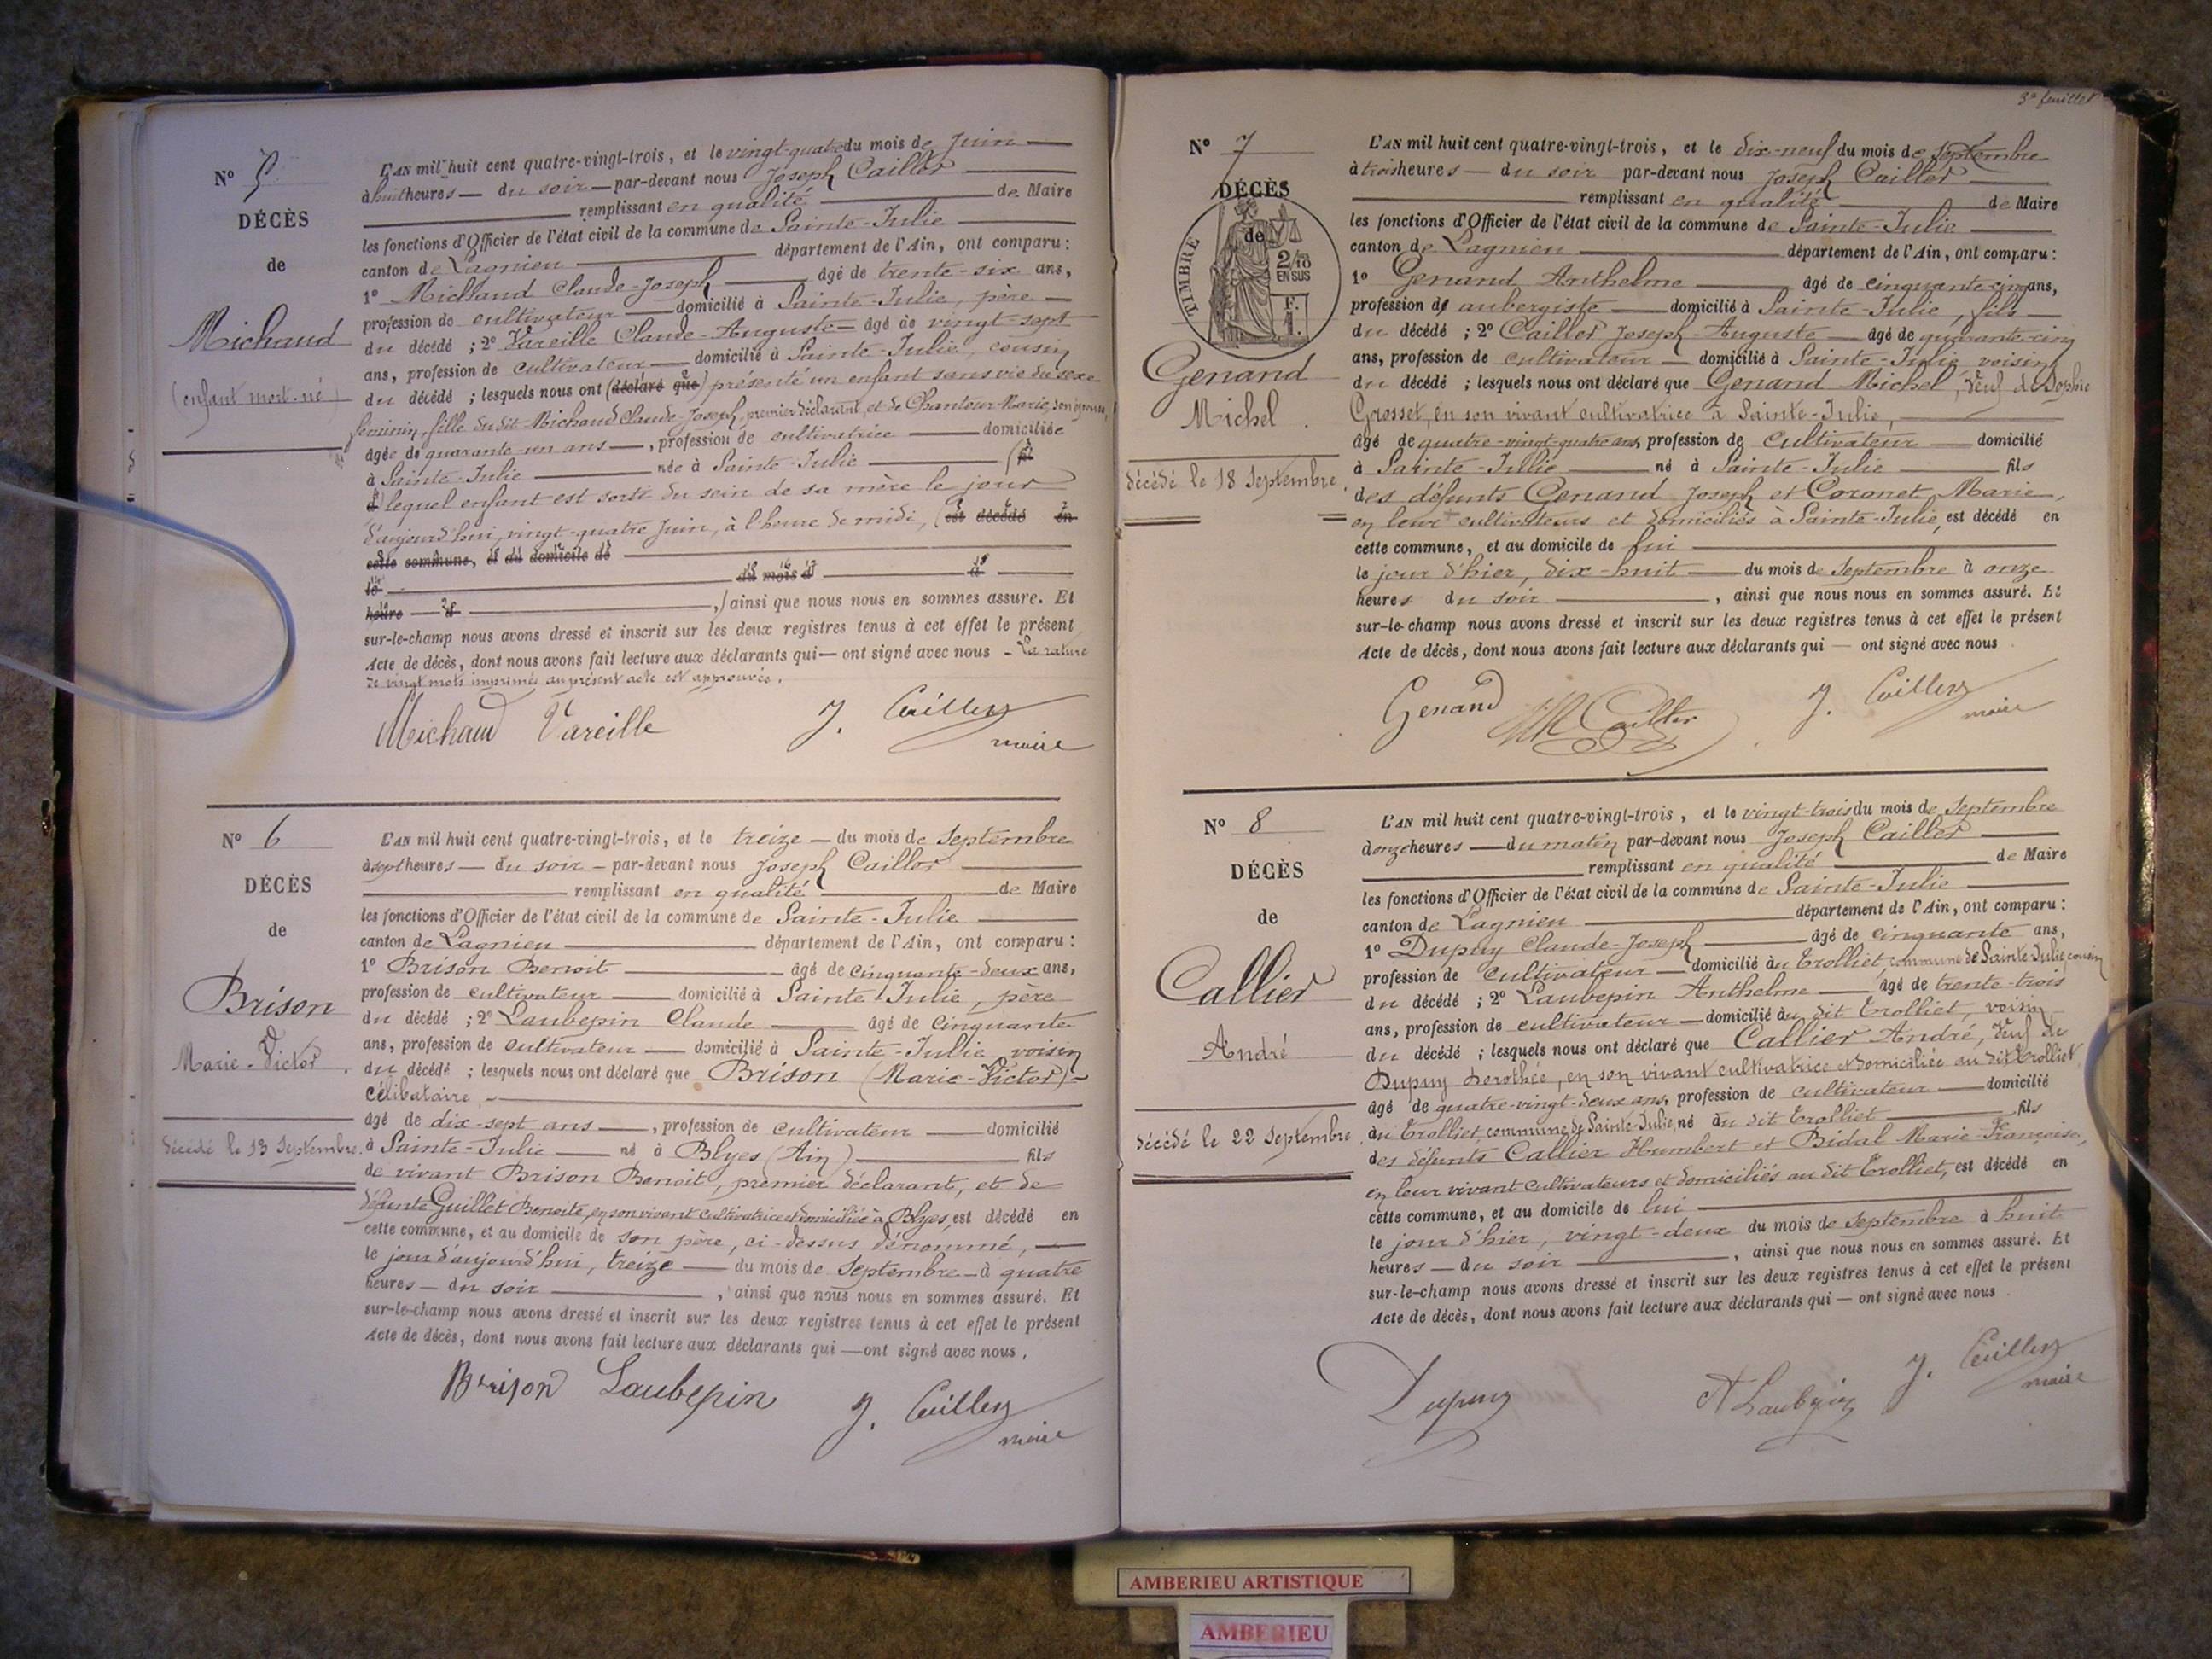 N° 5
DÉCÈS
de
Michaud
(enfant mort-né)
L'AN mil huit cent quatre-vingt-trois, et le vingt-quatre du mois de Juin
à huit heures — du soir — par-devant nous Joseph Caillet
remplissant en qualité de Maire
les fonctions d'Officier de l'état civil de la commune de Sainte-Julie
canton de Lagnieu département de l'Ain, ont comparu :
1° Michaud Claude-Joseph âgé de trente-six ans,
profession de cultivateur domicilié à Sainte-Julie, père
du décédé ; 2° Vareille Claude-Auguste — âgé de vingt-sept
ans, profession de cultivateur domicilié à Sainte-Julie, cousin
du décédé ; lesquels nous ont (déclaré que) présenté un enfant sans vie du sexe
féminin, fille du dit Michaud Claude-Joseph, premier déclarant, et de Chanteur Marie, son épouse,
âgée de quarante-un ans —, profession de cultivatrice domiciliée
à Sainte-Julie née à Sainte-Julie
lequel enfant est sorti du sein de sa mère le jour
d'aujourd'hui, vingt-quatre Juin, à l'heure de midi, (est décédé en
cette commune, et au domicile de
le du mois d à
heure , ainsi que nous nous en sommes assuré. Et
sur-le-champ nous avons dressé et inscrit sur les deux registres tenus à cet effet le présent
Acte de décès, dont nous avons fait lecture aux déclarants qui — ont signé avec nous - La rature
de vingt mots imprimés au présent acte est approuvée.
Michaud Vareille J. Caillet
maire
N° 6
DÉCÈS
de
Brison
Marie-Victor.
décédé le 13 Septembre.
L'AN mil huit cent quatre-vingt-trois, et le treize — du mois de Septembre
à sept heures — du soir — par-devant nous Joseph Caillet
remplissant en qualité de Maire
les fonctions d'Officier de l'état civil de la commune de Sainte-Julie
canton de Lagnieu département de l'Ain, ont comparu :
1° Brison Benoit âgé de cinquante-deux ans,
profession de cultivateur domicilié à Sainte-Julie, père
du décédé ; 2° Laubepin Claude âgé de cinquante
ans, profession de cultivateur domicilié à Sainte-Julie voisin
du décédé ; lesquels nous ont déclaré que Brison (Marie-Victor)
célibataire,
âgé de dix-sept ans —, profession de cultivateur domicilié
à Sainte-Julie né à Blyes (Ain) fils
de vivant Brison Benoit, premier déclarant, et de
défunte Guillet Benoite, en son vivant cultivatrice et domiciliée à Blyes, est décédé en
cette commune, et au domicile de son père, ci-dessus dénommé,
le jour d'aujourd'hui, treize du mois de Septembre à quatre
heures — du soir , ainsi que nous nous en sommes assuré. Et
sur-le-champ nous avons dressé et inscrit sur les deux registres tenus à cet effet le présent
Acte de décès, dont nous avons fait lecture aux déclarants qui — ont signé avec nous.
Brison Laubepin J. Caillet
maire
3e feuillet
N° 7
DÉCÈS
de
TIMBRE
2/10
EN SUS
F.
1.
Genand
Michel.
décédé le 18 Septembre.
L'AN mil huit cent quatre-vingt-trois, et le dix-neuf du mois de Septembre
à trois heures — du soir par-devant nous Joseph Caillet
remplissant en qualité de Maire
les fonctions d'Officier de l'état civil de la commune de Sainte-Julie
canton de Lagnieu département de l'Ain, ont comparu :
1° Genand Anthelme âgé de cinquante-cinq ans,
profession de aubergiste domicilié à Sainte-Julie, fils
du décédé ; 2° Caillet Joseph-Auguste — âgé de quarante-cinq
ans, profession de cultivateur domicilié à Sainte-Julie voisin
du décédé ; lesquels nous ont déclaré que Genand Michel, veuf de Sophie
Grosset, en son vivant cultivatrice à Sainte-Julie,
âgé de quatre-vingt-quatre ans, profession de cultivateur domicilié
à Sainte-Julie né à Sainte-Julie fils
des défunts Genand Joseph et Coronet Marie,
en leur cultivateurs et domiciliés à Sainte-Julie, est décédé en
cette commune, et au domicile de lui
le jour d'hier, dix-huit du mois de Septembre à onze
heures du soir , ainsi que nous nous en sommes assuré. Et
sur-le-champ nous avons dressé et inscrit sur les deux registres tenus à cet effet le présent
Acte de décès, dont nous avons fait lecture aux déclarants qui — ont signé avec nous
Genand Caillet J. Caillet
maire
N° 8
DÉCÈS
de
Callier
André
décédé le 22 Septembre.
L'AN mil huit cent quatre-vingt-trois, et le vingt-trois du mois de Septembre
à onze heures — du matin par-devant nous Joseph Caillet
remplissant en qualité de Maire
les fonctions d'Officier de l'état civil de la commune de Sainte-Julie
canton de Lagnieu département de l'Ain, ont comparu :
1° Dupuy Claude-Joseph âgé de cinquante ans,
profession de cultivateur domicilié au Trolliet, commune de Sainte-Julie, cousin
du décédé ; 2° Laubepin Anthelme âgé de trente-trois
ans, profession de cultivateur — domicilié au dit Trolliet, voisin
du décédé ; lesquels nous ont déclaré que Callier André, veuf de
Dupuy Dorothée, en son vivant cultivatrice et domiciliée au dit Trolliet
âgé de quatre-vingt-deux ans, profession de cultivateur domicilié
au Trolliet, commune de Sainte-Julie, né au dit Trolliet fils
des défunts Callier Humbert et Bidal Marie-Françoise,
en leur vivant cultivateurs et domiciliés au dit Trolliet, est décédé en
cette commune, et au domicile de lui
le jour d'hier, vingt-deux du mois de Septembre à huit
heures — du soir , ainsi que nous nous en sommes assuré. Et
sur-le-champ nous avons dressé et inscrit sur les deux registres tenus à cet effet le présent
Acte de décès, dont nous avons fait lecture aux déclarants qui — ont signé avec nous.
Dupuy A Laubepin J. Caillet
maire
AMBERIEU ARTISTIQUE
AMBERIEU